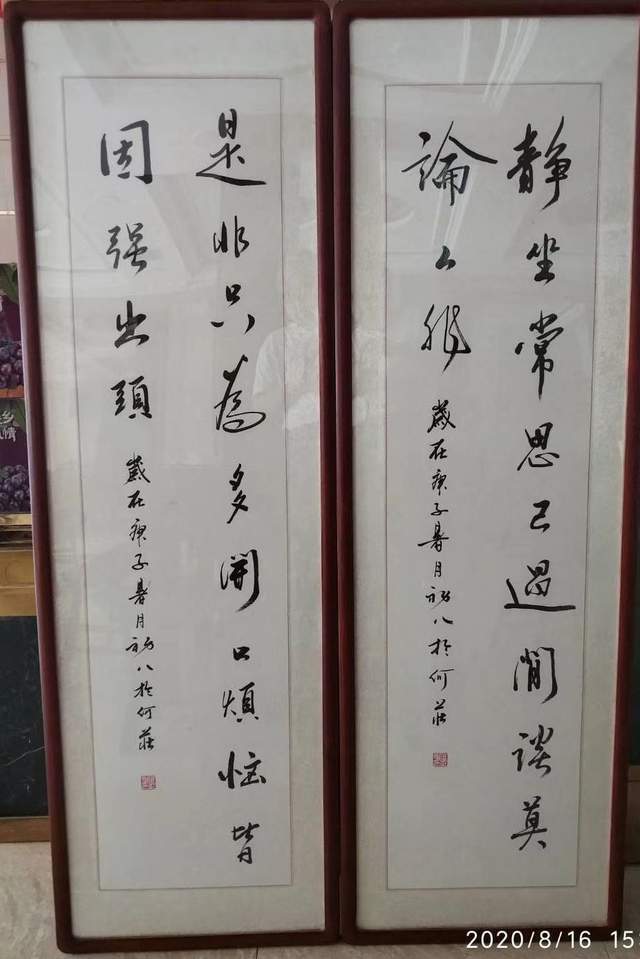 靜坐常思己過閒談莫
論人非
歲在庚子暑月初八於何莊
是非只為多開口煩惱皆
因强出頭
歲在庚子暑月初八於何莊
2020/8/16 15: